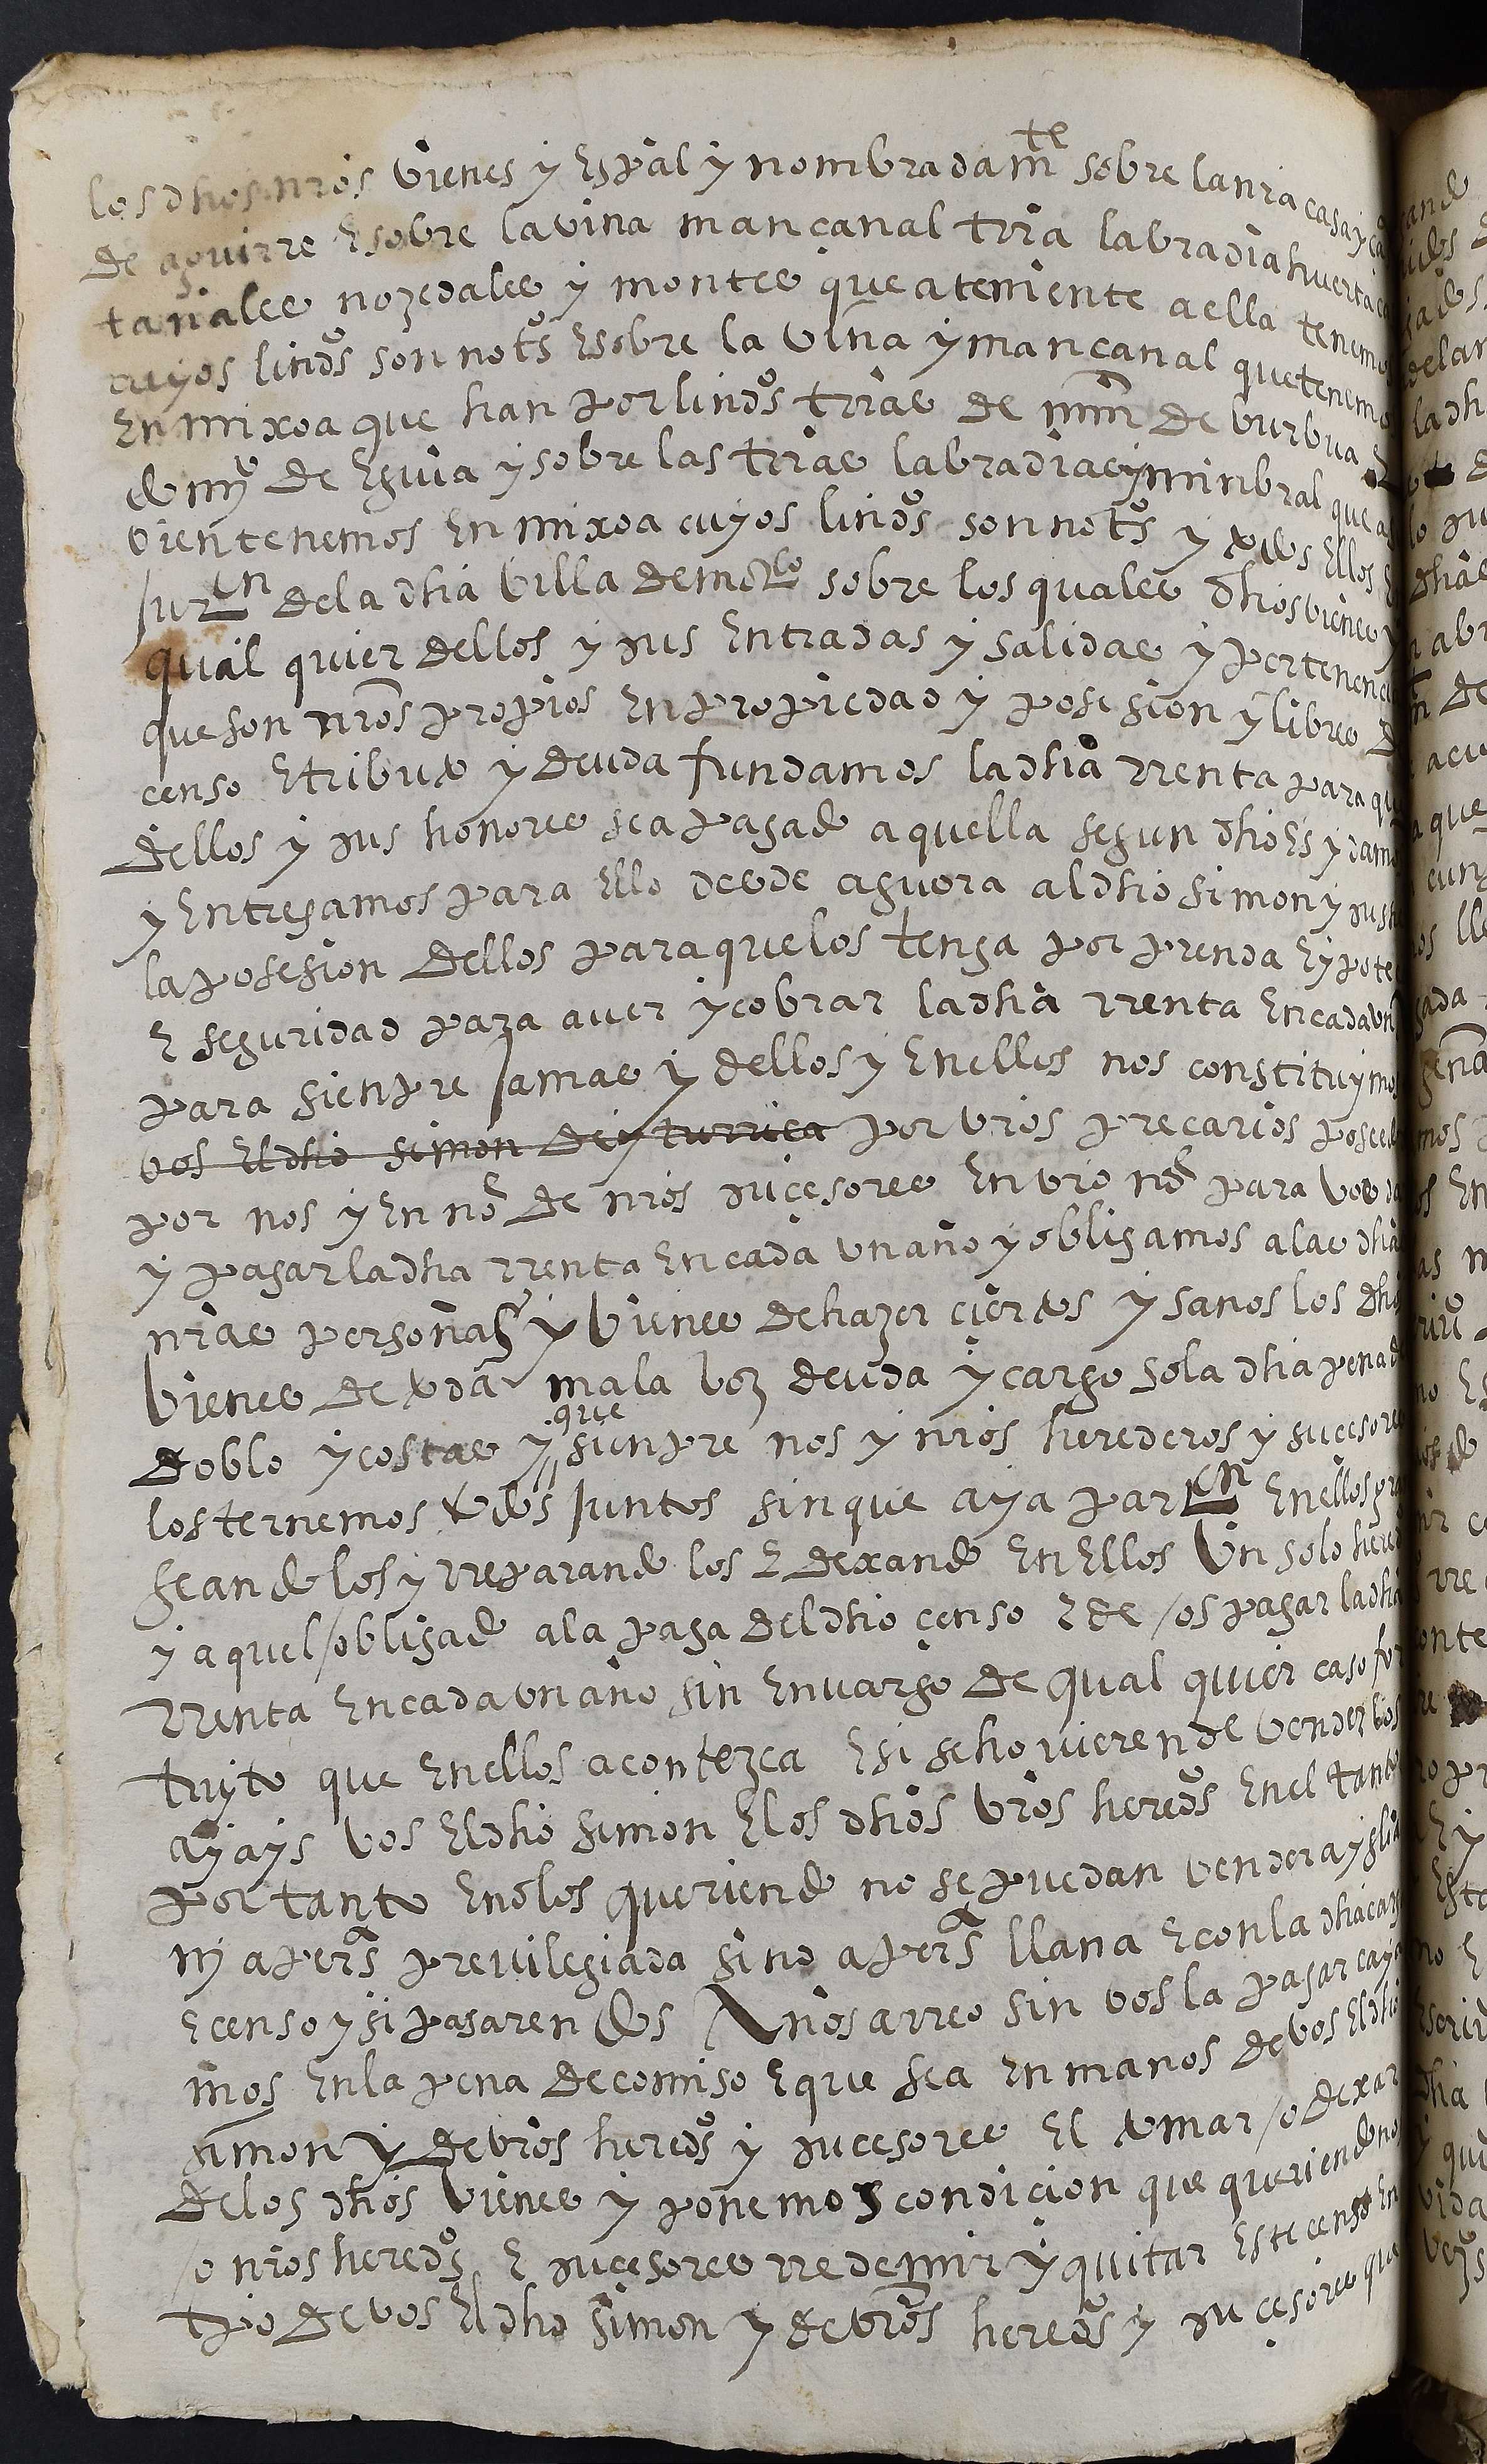 los dhos nr̃os vienes y espãl y nombradamte sobre la nr̃a casa y ca
de aguirre e sobre la viña mançanal trr̃a labradia huerta ca
tanales nozedales y montes que ateniente a ella tenemos
cuyos lindos son notos e sobre la viña y mançanal que tenemos
en mixoa que han por lindos trr̃as de mm̃ de burbua e
domyo de eguia y sobre las trr̃as labradias y minbral que as
vien tenemos en mixoa cuyos lindos son notos y todos ellos e
jurcn de la dha villa de motlo sobre los quales dhos vienes y
qual quier dellos y sus entradas y salidas y pertenenci
que son nr̃os propios en propiedad y posesion y libres de
censo e tributo y deuda fundamos la dha rrenta para que
dellos y sus honores sea pagado aquella segun dho es y damos
y entregamos para ello desde aguora al dho simon y sus h
la posesion dellos para que los tenga por prenda e ypote
e seguridad para aver y cobrar la dha rrenta en cada un
para sienpre jamas y dellos y en ellos nos constituymos
vos el dho simon de yturriça por vr̃os precarios poseed
por nos y en nõ de nr̃os suçesores en vr̃o nõ para vos da
y pagar la dha rrenta en cada un año y obligamos a las dhas
nr̃as personas y vienes de hazer ciertos y sanos los dhos
vienes de toda mala voz deuda y cargo so la dha pena de
doblo y costas y que sienpre nos y nr̃os herederos y sucesores
los ternemos todos juntos sin que aya parcn en ellos gra
geandolos y rreparandolos e dexando en ellos un solo hered
y aquel obligado a la paga del dho çenso e de os pagar la dha
rrenta en cada un año sin envargo de qual quier caso for
tuyto que en ellos acontezca e si se hovieren de vender vos
ayays vos el dho simon e los dhos vr̃os heredos en el tanto
por tanto e no los queriendo no se puedan vender a yglia
nj a persa previlegiada sino a persa llana e con la dha carga
e censo y si pasaren dos años arreo sin vos la pagar caya
mos en la pena de comiso e que sea en manos de vos el dho
simon y de vr̃os heredos y sucesores el tomar o dexar
de los dhos vienes y ponemos condicion que queriendo nos
o nr̃os heredos e suçesores rredemir y quitar este censo en
tpo de vos el dho simon y de vr̃os heredos y suçesores que